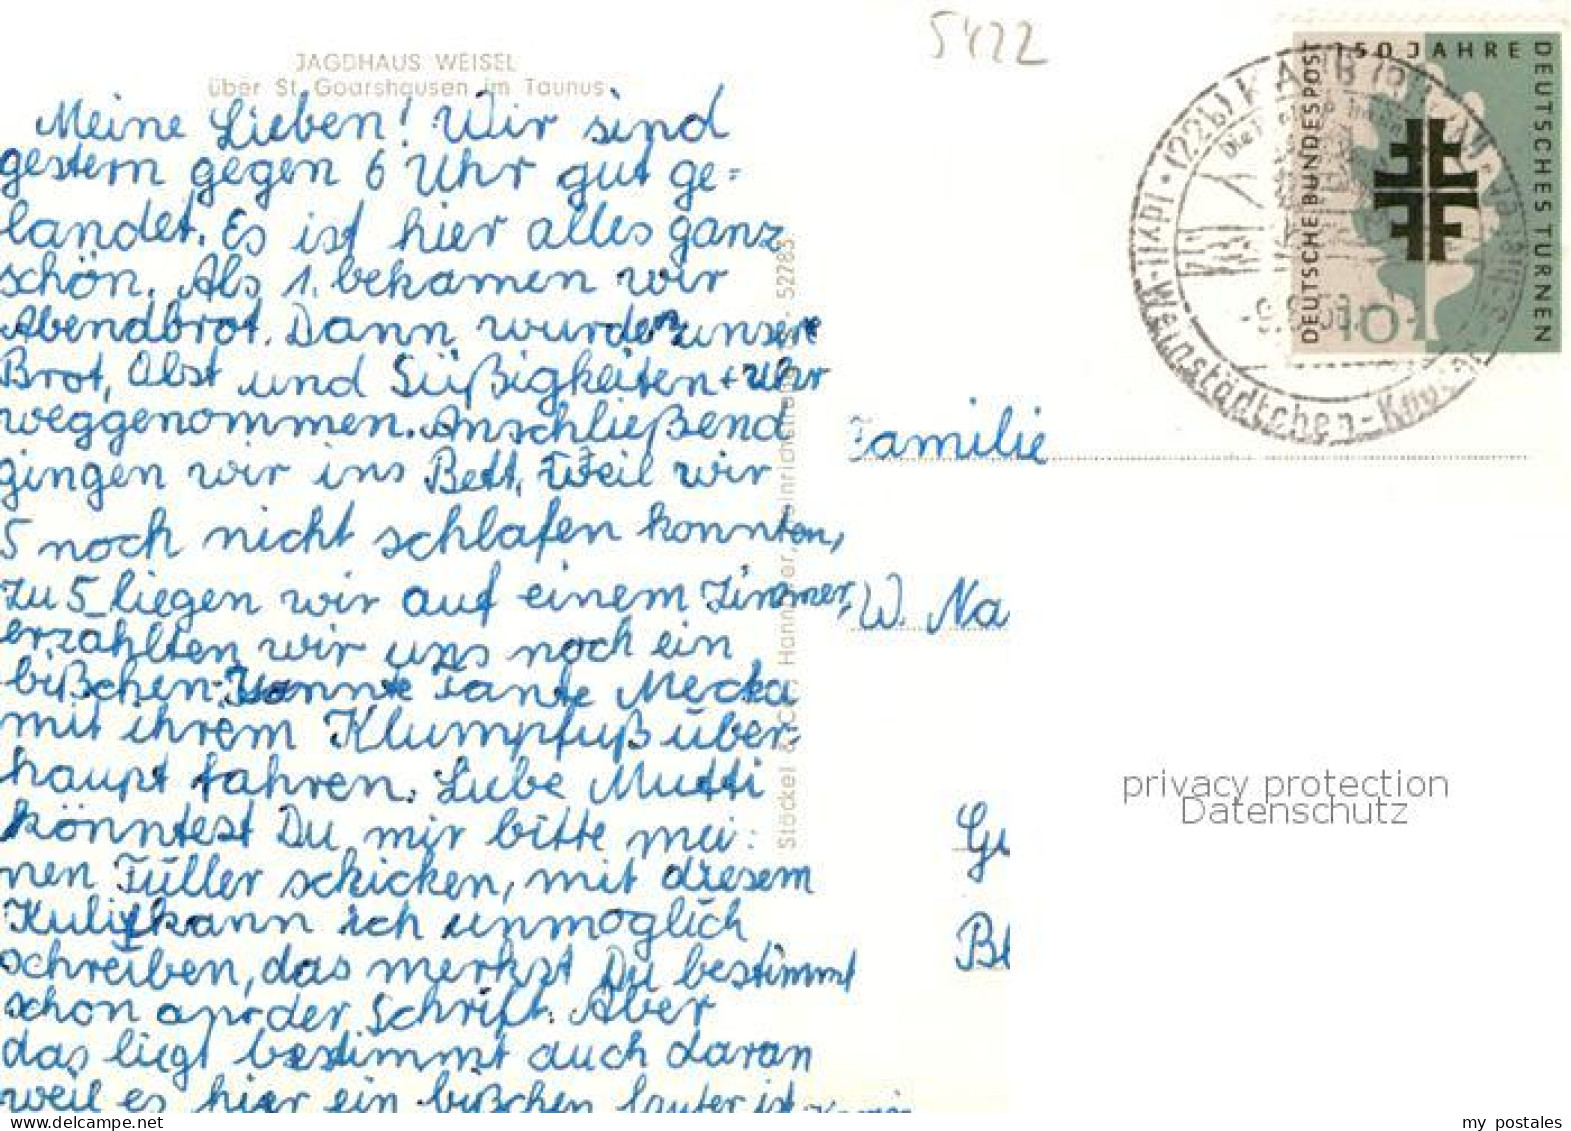 5422
JAGDHAUS WEISEL
über St. Goarshausen im Taunus
Meine Lieben! Wir sind
gestern gegen 6 Uhr gut ge=
landet. Es ist hier alles ganz
schön. Als 1. bekamen wir
Abendbrot. Dann wurden unsere
Brot, Obst und Süßigkeiten + Uhr
weggenommen. Anschließend
gingen wir ins Bett. Weil wir
5 noch nicht schlafen konnten,
zu 5 liegen wir auf einem Zimmer,
erzählten wir uns noch ein
bißchen. Konnte Tante Mecka
mit ihrem Klumpfuß über-
haupt fahren. Liebe Mutti
könntest Du mir bitte mei:
nen Füller schicken, mit diesem
Kuli kann ich unmöglich
schreiben, das merkst Du bestimmt
schon an der Schrift. Aber
das liegt bestimmt auch daran
weil es hier ein bißchen lauter ist
Stöckel & Co., Hannover, 52783
150 JAHRE
DEUTSCHES TURNEN
DEUTSCHE BUNDESPOST
10
(22b) KAUB
Weinstädtchen
Familie
W. Na
Gu
Bl
privacy protection
Datenschutz
my postales